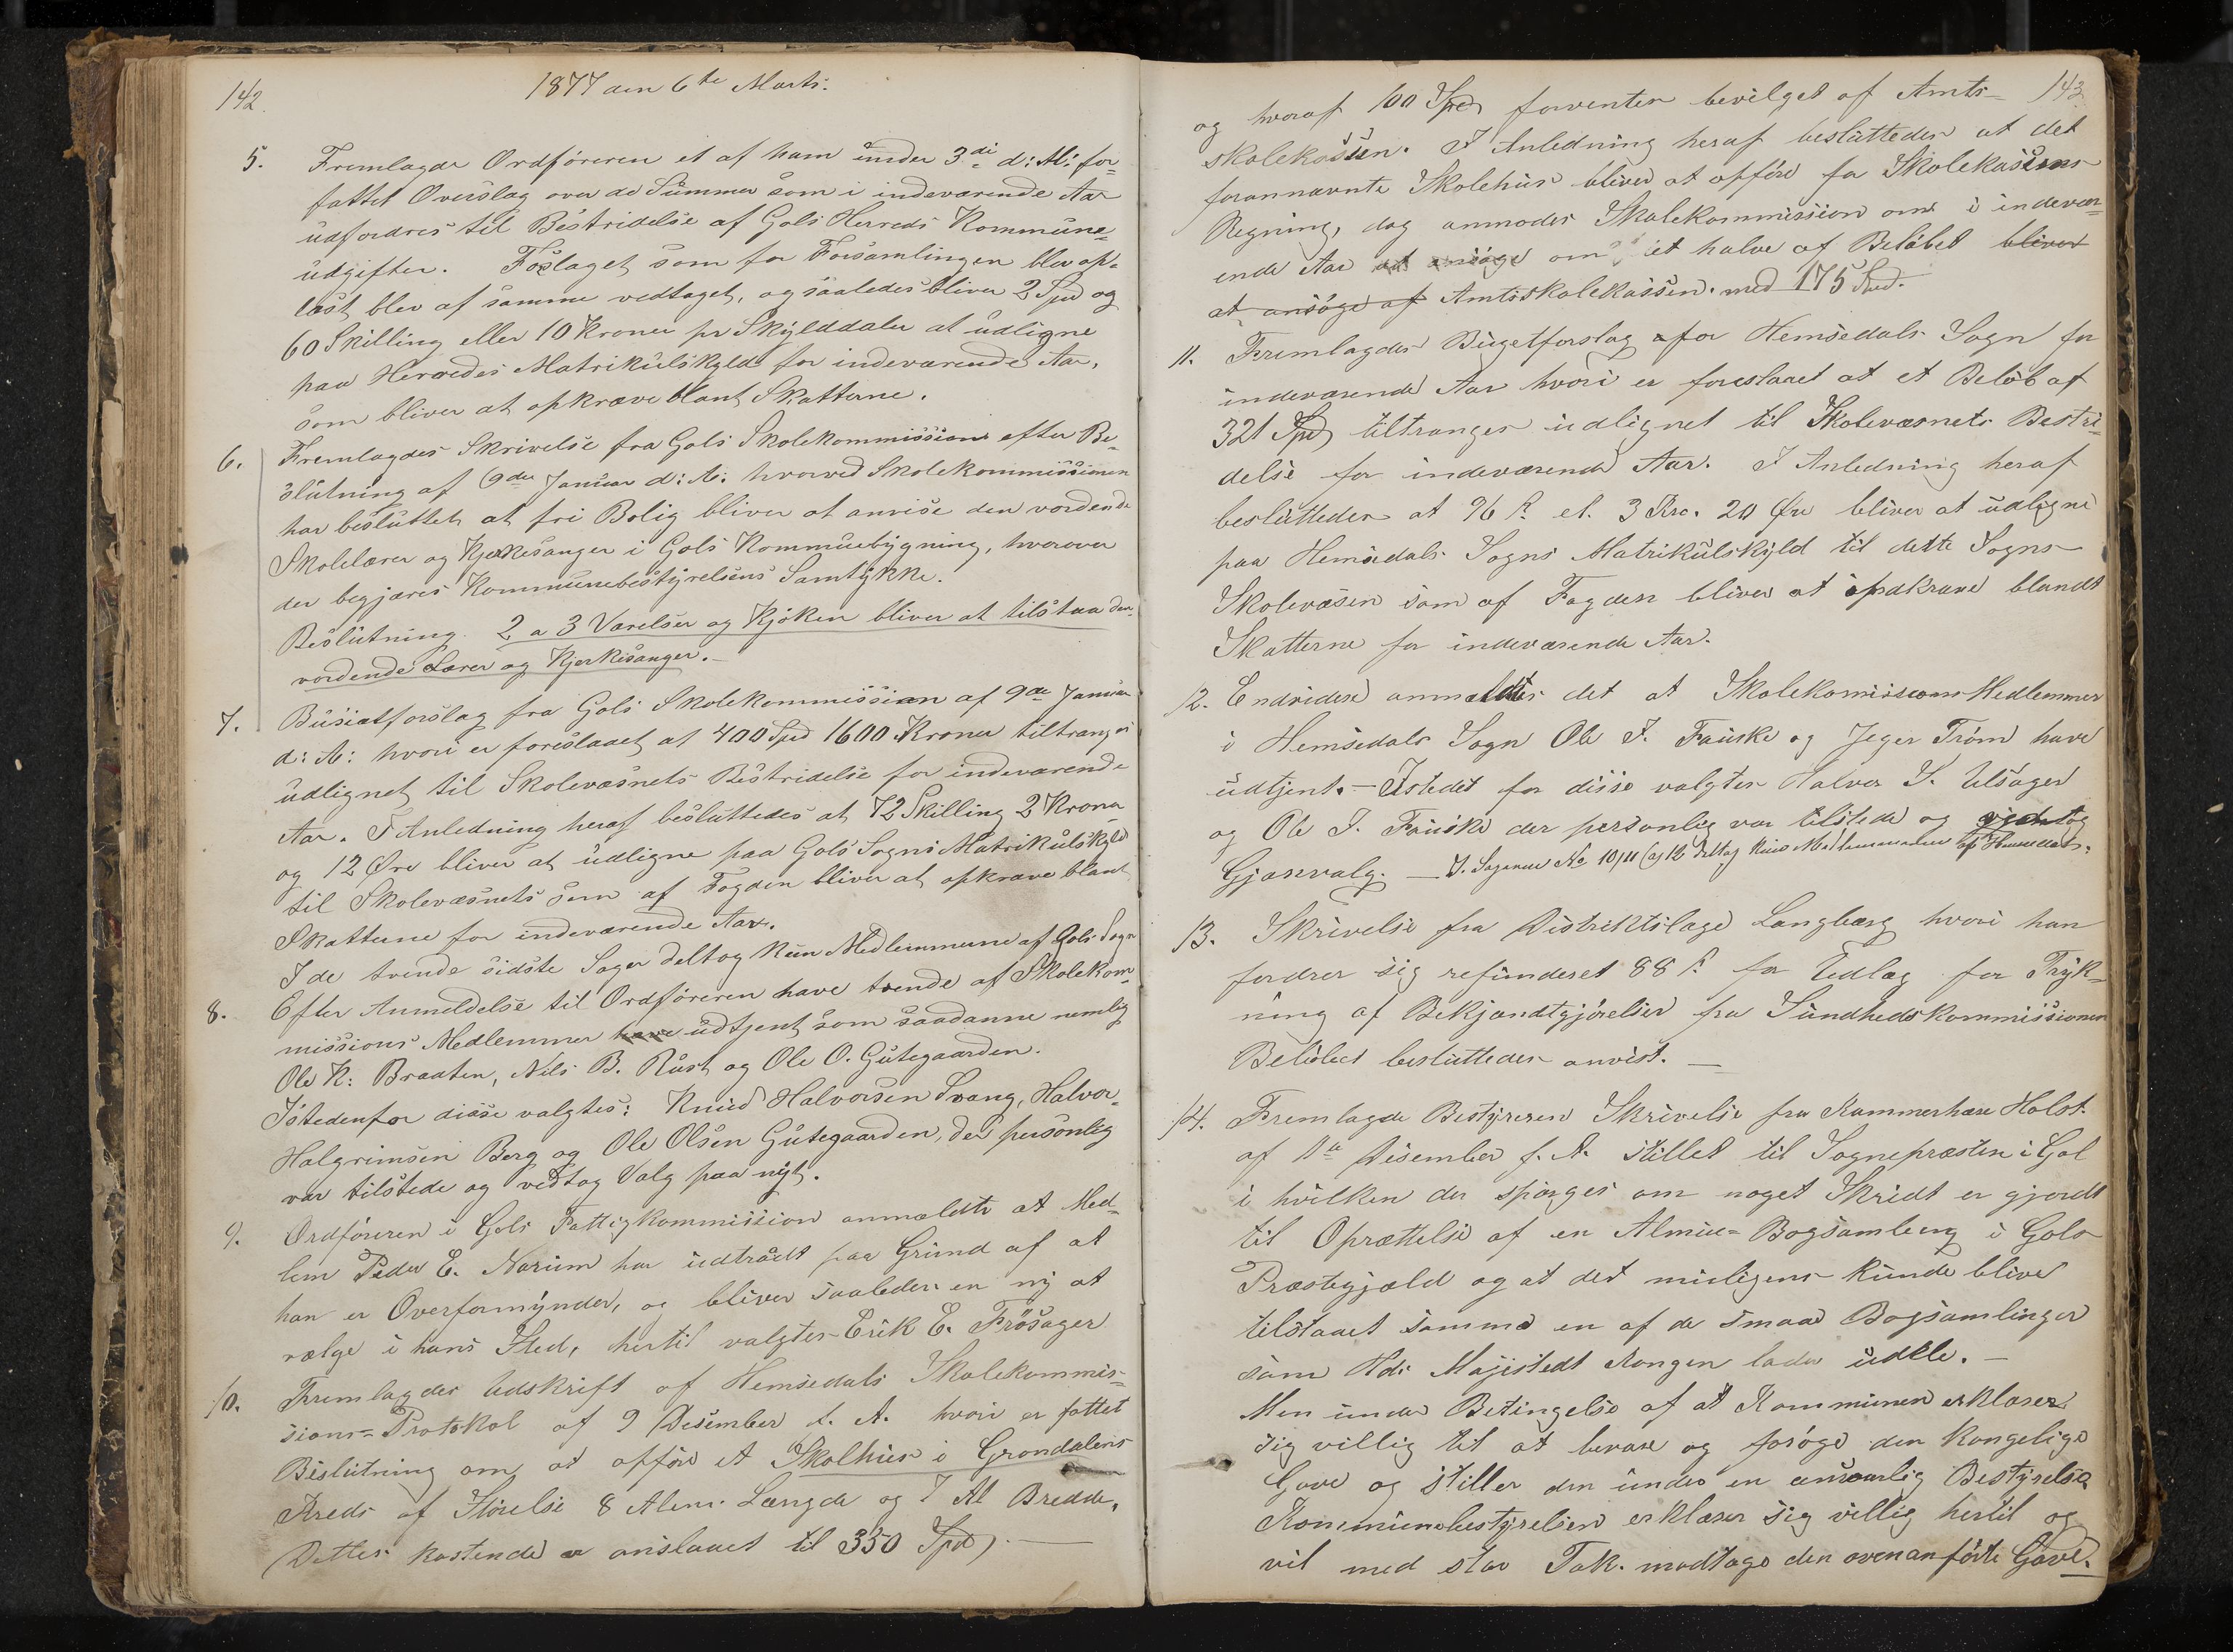 142.
1877 den 6te Marts.
5. Fremlagde Ordföreren et af ham under 3die d: M: for-
fattet Overslag over de Summer som i indeværende Aar
udfordres til Bestridelse af Gols Herreds Kommune-
udgifter. Foslaget som for Forsamlingen blev op-
læst blev af samme vedtaget, og saaledes bliver 2 Spd og
60 Skilling eller 10 Kroner pr Skylddaler at udligne
paa Herredes Matrikulskyld for indeværende Aar,
som bliver at opkræve blant Skatterne.
6. Fremlagdes Skrivelse fra Gols Skolekommission efter Be-
slutning af 9de Januar d: A: hvorved Skolekommissionen
har besluttet at fri Bolig bliver at anvise den vordende
Skolelærer og Kjerkesanger i Gols Kommunebygning, hvorover
der begjæres Kommunebestyrelsens Samtykke.
Beslutning. 2 a 3 Værelser og Kjöken bliver at tilstaa den
vordende Lærer og Kjerkesanger.—
7. Busietforslag fra Gols Skolekommission af 9de Januar
d: A: hvori er foreslaaet at 400 Spd 1600 Kroner tiltranges
udlignet til Skolevæsnets Bestridelse for indeværende
Aar. I Anledning heraf besluttedes at 72 Skilling 2 Kroner
og 12 Øre bliver at udligne paa Gols Sogns Matrikulskyld
til Skolevæsnets som af Fogden bliver at opkræve blant
Skatterne for indeværende Aar.
I de tvende sidste Sager deltog kun Medlemmerne af Gols Sogn
8. Efter Anmeldelse til Ordföreren have trende af Skolekom-
missions Medlemmer have udtjent som saadanne nemlig
Ole K: Braaten, Nils B. Rust og Ole O. Gutegaarden.
Istedenfor disse valgtes: Knud Halvorsen Svang, Halvor
Halgrimsen Berg og Ole Olsen Gutegaarden, der personlig
var tilstede og vedtog Valg paa nyt.
9. Ordföreren i Gols Fattigkommission anmeldte at Med-
lem Peder E. Narum har udtrådt paa Grund af at
han er Overformynder, og bliver saaledes en ny at
vælge i hans Sted, hertil valgtes Erik E. Frösager
10. Fremlagdes Udskrift af Hemsedals Skolekommis-
sions-Protokol af 9 Desember f. A. hvori er fattet
Beslutning om at opföre et Skolhus i Grøndalens
Kreds af Störelse 8 Alens Længde og 7 Al Bredde,
Dettes kostende er anslaaet til 350 Spd).—
143
og hvoraf 100 Spd forventes bevilget af Amts-
skolekassen. I Anledning heraf besluttedes at det
forannævnte Skolehus bliver at opföre for Skolekassens
Regning, dog anmodes Skolekommission om i indevær-
ende Aar at ansöge om det halve af Belöbet bliver
at ansöge af Amtsskolekassen. med 175 Spd.
11. Fremlagdes Bugetforslag for Hemsedals Sogn for
indeværende Aar hvori er foreslaaet at et Belöb af
321 Spd tiltranges udlignet til Skolevæsnets Bestri-
delse for indeværende Aar. I Anledning heraf
besluttedes at 96 ß el. 3 Kro. 20 Øre bliver at udligne
paa Hemsedals Sogns Matrikulskyld til dette Sogns
Skolevæsen som af Fogden bliver at opkræve blandt
Skatterne for indeværende Aar.
12. Endvidere anmeldtes det at Skolekomissions Medlemmer
i Hemsedals Sogn Ole J. Fauske og Jeger Tröm have
udtjent.— Istedet for disse valgtes Halvor S. Ulsager
og Ole J. Fauske der personlig var tilstede og vedtog
Gjenvalg. — I Sagerne No 10, 11 og 12 deltog kun Medlemmerne af Hemsedal.
13. Skrivelse fra Distriktslæge Langberg hvori han
fordrer sig refunderet 88 ß for Udlæg for Tryk-
ning af Bekjendtgjörelser fra Sundhedskommissionen
Belöbet besluttedes anvist. —
14. Fremlagde Bestyreren Skrivelse fra Kammerherre Holst.
af 11te Desember f. A. stillet til Sognepresten i Gol
i hvilken der spörges om noget Skridt er gjordt
til Oprættelse af en Almue-Bogsamling i Gols
Præstegjæld og at det muligens kunde blive
tilstaaet samme en af de smaa Bogsamlinger
som Hds Majestedt Kongen lader uddele.—
Men under Betingelse af at Kommunen erklærer
sig villig til at bevare og forøge den kongelige
Gave og stiller den under en ansvarlig Bestyrelse
Kommunebestyrelsen erklærer sig villig hertil og
vil med stor Tak. modtage den ovenanförte Gave.